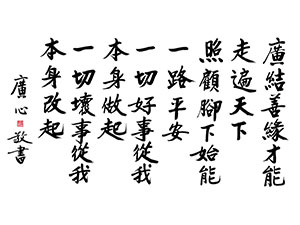 廣結善緣才能
走遍天下
照顧腳下始能
一路平安
一切好事從我
本身做起
一切壞事從我
本身改起
廣心敬書